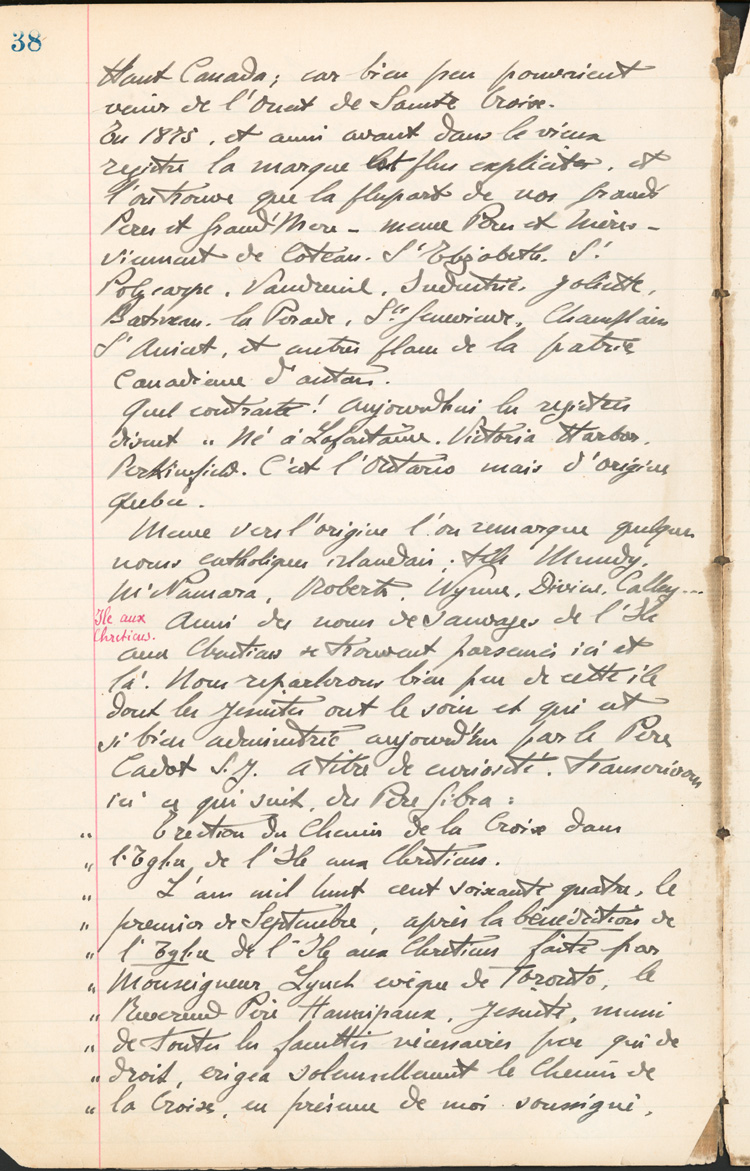 38
Haut Canada; car bien peu pouvaient
venir de l'Ouest de Sainte Croix.
En 1875, et aussi avant dans le vieux
registre la marque est plus explicite, et
l'on trouve que la plupart de nos Grands
Peres et Grand'Mere - meme Peres et Mères -
viennent de Coteau. St Elizabeth. St
Polycarpe. Vaudreuil. Industrie. Joliette,
Batiscan. la Perade, Ste Genevieve, Champlain
St Anicet, et autres place de la patrie
Canadienne d'antan.
Quel contraste! Aujourd'hui les registres
disent " Né à Lafontaine. Victoria Harbor.
Perkinsfield. C'est l'Ontario mais d'origine
Quebec.
Meme vers l'origine l'on remarque quelques
noms catholiques irlandais; tels Mundy,
McNamara, Roberts, Wynne, Divine, Calley...
Ile aux
Chretiens.
Aussi des noms de sauvages de l'Ile
aux Chretiens se trouvent parsemés ici et
là. Nous reparlerons bien peu de cette ile
dont les Jesuites ont le soin et qui est
si bien administrée aujourd'hui par le Pere
Cadot S.J. A titre de curiosité. Transcrivons
ici ce qui suit, du Pere Gibra:
" Erection du Chemin de la Croix dans
" l'Eglise de l'Ile aux Chretiens.
" L'an mil huit cent soixante quatre, le
" premier de Septembre, après la bénédiction de
" l'Eglise de l'Ile aux Chretiens faite par
" Monseigneur Lynch evêque de Toronto, le
" Reverend Père Hannipaux, Jesuite, muni
" de toutes les facultés nécessaires par qui de
" droit, erigea solennellement le Chemin de
" la Croix, en présence de moi soussigné,